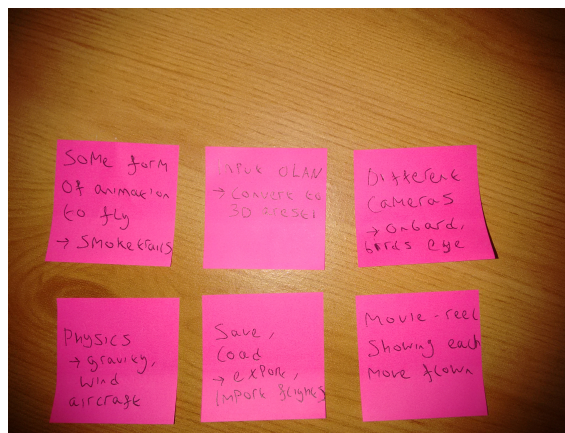 Some form
of animation
to fly
→ Smoketrails
Input OLAN
→ Convert to
Different
Cameras
→ Onbard,
birds eye
Physics
→ gravity,
wind
aircraft
Save,
Load
→ export,
import flights
Movie-reel
Showing each
Move flown